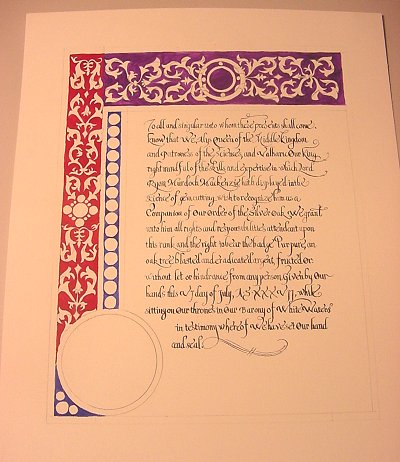 To all and singular unto whom these presents shall come,
know that We, Alys Queen of the Middle Kingdom
and Patroness of the Sciences, and Valharic Our King,
right mindful of the skills and expertise in which Lord
Ryan Murdoch Mackenzie hath displayed in the
science of gem cutting, wish to recognize him as a
Companion of Our Order of the Silver Oak. We grant
unto him all rights and responsibilities attendant upon
this rank and the right to bear the badge Purpure, an
oak tree blasted and eradicated argent, fruited Or
without let or hindrance from any person. Given by Our
hands this 7 day of July, AS XXXVII, while
sitting on Our thrones in Our Barony of White Waters
in testimony whereof We have set Our hand
and seal.